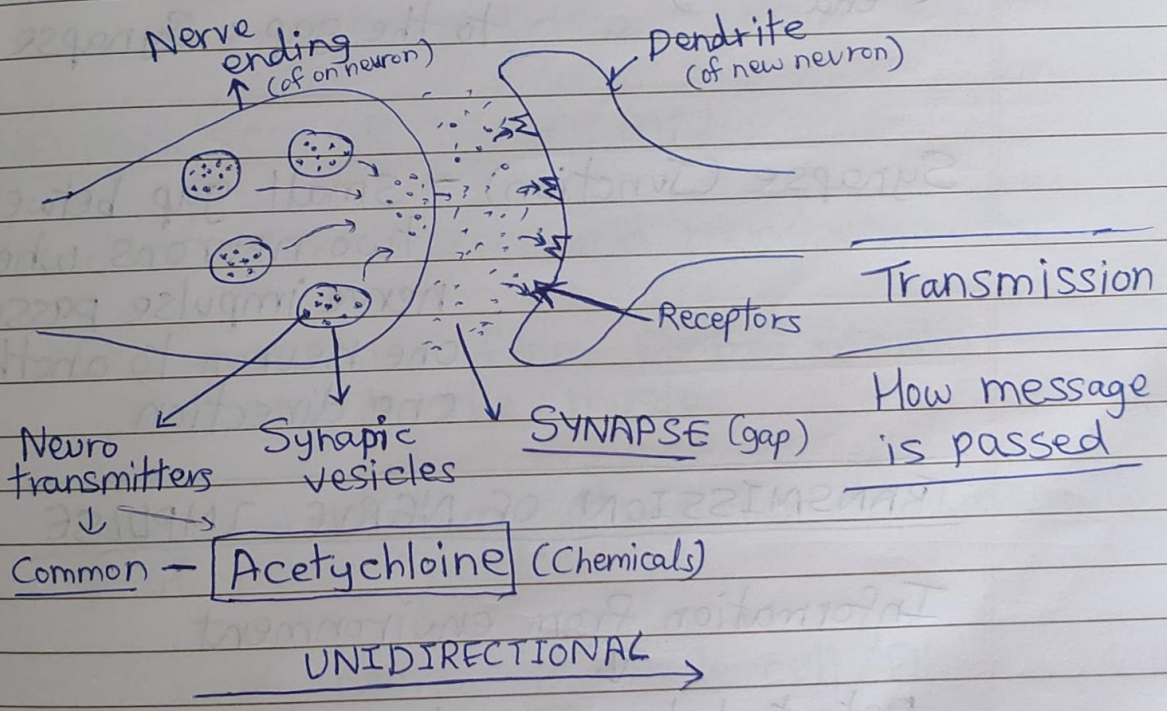 Nerve
ending
(of on neuron)
Dendrite
(of new nevron)
Receptors
Transmission
How message
is passed
Neuro
transmitters
Synapic
vesicles
SYNAPSE (gap)
Common - Acetychloine (Chemicals)
UNIDIRECTIONAL